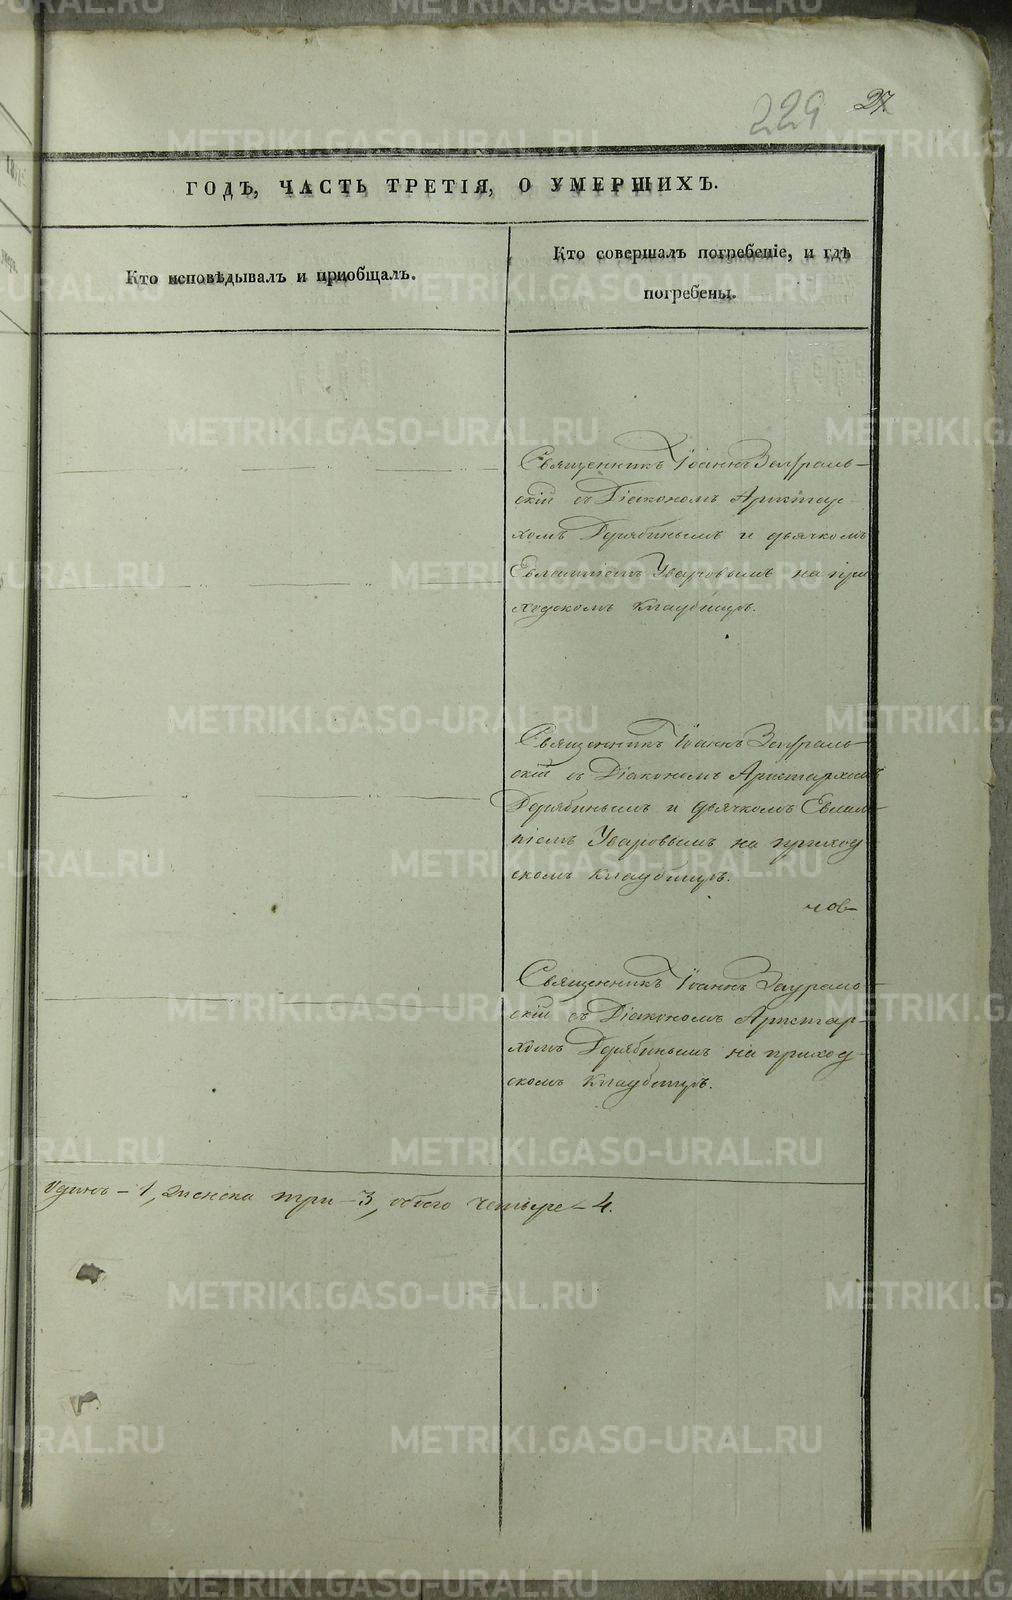 229 27.
ГОДЪ, ЧАСТЬ ТРЕТІЯ, О УМЕРШИХЪ.
Кто исповѣдывалъ и пріобщалъ.
Кто совершалъ погребеніе, и гдѣ
погребены.
Священникъ Іоаннъ Заураль-
скій съ Діакономъ Аристар
хомъ Дерябинымъ и дьячкомъ
Евлампіемъ Уваровымъ на при
ходскомъ кладбищѣ.
Священникъ Іоаннъ Заураль-
скій съ Діакономъ Аристархомъ
Дерябинымъ и дьячкомъ Евлам-
піемъ Уваровымъ на приход
скомъ кладбищѣ.
Священникъ Іоаннъ Заураль-
скій съ Діакономъ Аристар-
хомъ Дерябинымъ на приход-
скомъ кладбищѣ.
Одинъ - 1, женска три - 3, обоего четыре - 4.
METRIKI.GASO-URAL.RU